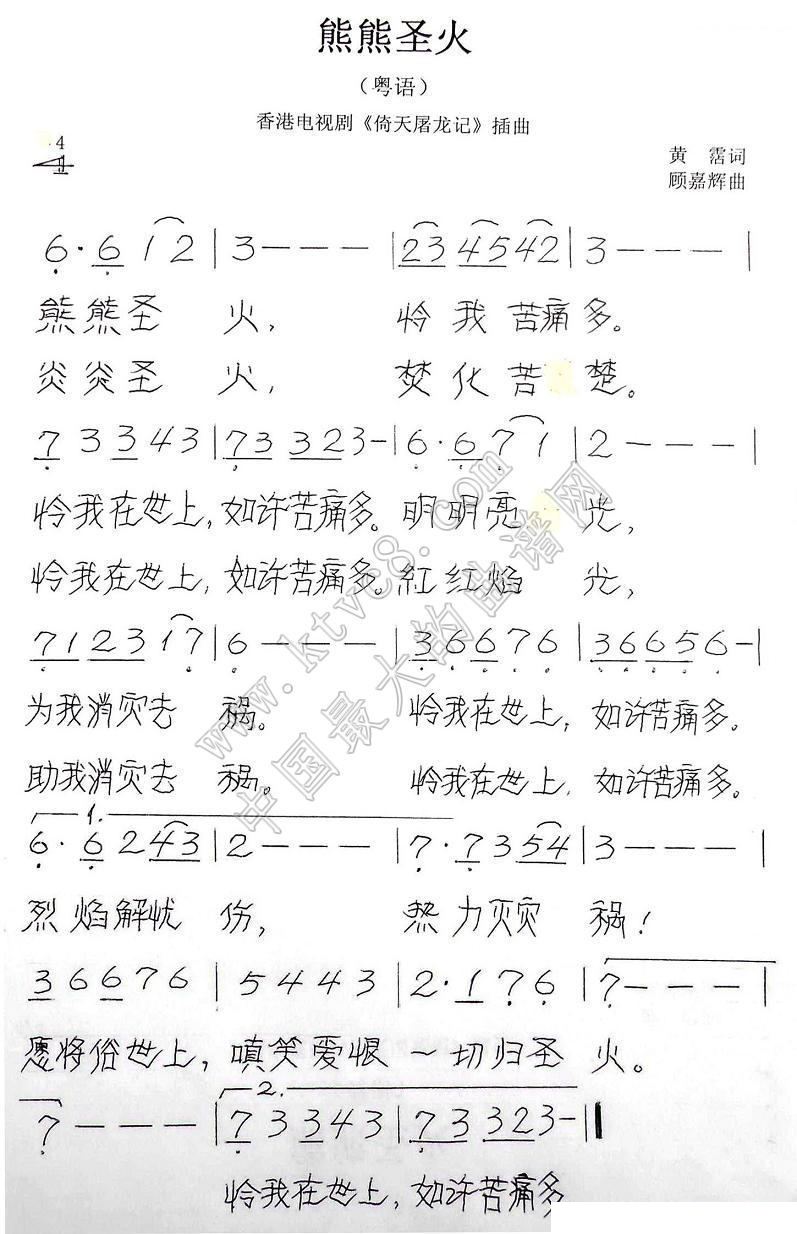 熊熊圣火
（粤语）
香港电视剧《倚天屠龙记》插曲
4
4
黄霑词
顾嘉辉曲
6·6 1 2 | 3 - - - | 23 45 42 | 3 - - - |
熊熊圣 火， 怜我苦痛多。
炎炎圣 火， 焚化苦 楚。
7 3 3 4 3 | 7 3 3 3 2 3 - | 6·6 7 1 | 2 - - - |
怜我在世上，如许苦痛多。明明亮 光，
怜我在世上，如许苦痛多。紅红焰 光，
7 1 2 3 1 7 | 6 - - - | 3 6 6 7 6 | 3 6 6 5 6 - |
为我消灾去 祸。 怜我在世上，如许苦痛多。
助我消灾去 祸。 怜我在世上，如许苦痛多。
1.
6·6 2 4 3 | 2 - - - | 7·7 3 5 4 | 3 - - - |
烈焰解忧 伤， 热力灭灾 祸！
3 6 6 7 6 | 5 4 4 3 | 2·1 7 6 | 7 - - - |
愿将俗世上，嗔笑爱恨一切归圣火。
2.
7 - - - | 7 3 3 4 3 | 7 3 3 2 3 - ‖
怜我在世上，如许苦痛多
www.ktvc8.com
中国最大的曲谱网